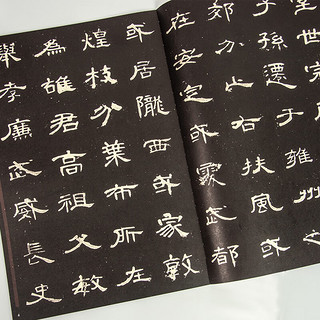 世宗
子孫遷于雍州之
郊分止右扶風或
在安定或處武都
或居隴西或家敦
煌枝分葉布所在
為雄君高祖父敏
舉孝廉武威長史